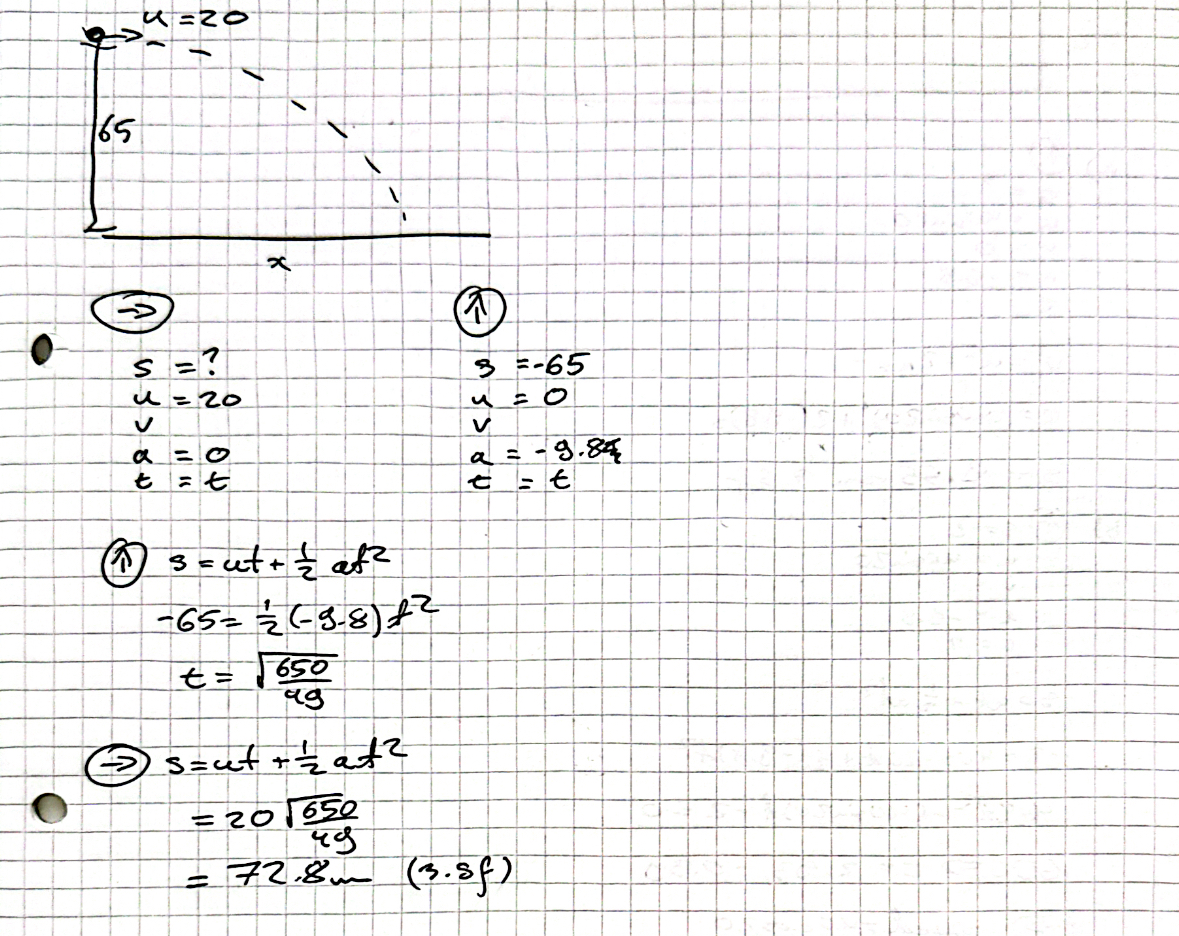 u = 20
65
x
→
s = ?
u = 20
v
a = 0
t = t
↑
s = -65
u = 0
v
a = -9.8
t = t
↑ s = ut + 1/2 at²
-65 = 1/2 (-9.8) t²
t = √(650/49)
→ s = ut + 1/2 at²
= 20 √(650/49)
= 72.8m (3.sf)